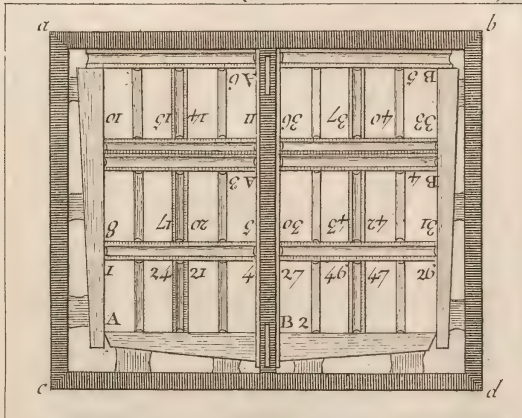 a b
A 6 B 5
10 15 14 11 36 37 40 33
A 3 B 4
8 17 20 5 30 43 42 31
1 24 21 4 27 46 47 26
A B 2
c d